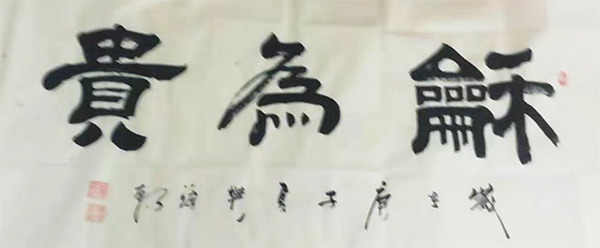 龢為貴
歲在庚子夏